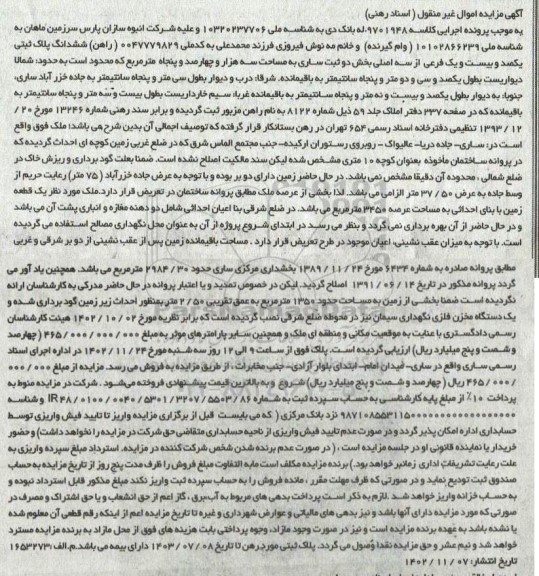 آگهی مزایده اموال غیر منقول ( اسناد رهنی)
به موجب پرونده اجرایی کلاسه ۹۷۰۱۹۴۸ له بانک دی به شناسه ملی ۱۰۳۲۰۲۳۷۷۰۶ و علیه شرکت انبوه سازان پارس سرزمین ماهان به
شناسه ملی ۱۰۱۰۲۸۶۶۲۳۹ ( وام گیرنده) و خانم مه نوش فیروزی فرزند محمدعلی به کدملی ۰۰۴۷۷۷۹۸۲۹ ( راهن) ششدانگ پلاک ثبتی
یکصد و بیست و یک فرعی از سه اصلی بخش دو ثبت ساری به مساحت سه هزار و چهارصد و پنجاه مترمربع که محدود است به حدود: شمالا
دیواریست بطول یکصد و سی و دو متر و پنجاه سانتیمتر به باقیمانده. شرقا: درب و دیوار بطول سی متر و پنجاه سانتیمتر به جاده خزر آباد ساری،
جنوبا: به دیوار بطول یکصد و بیست و نه متر و پنجاه سانتیمتر به باقیمانده غربا: سیم خارداریست بطول بیست و سه متر و پنجاه سانتیمتر به
باقیمانده که در صفحه ۳۳۷ دفتر املاک جلد ۵۹ ذیل شماره ۸۱۲۲ به نام راهن مزبور ثبت گردیده و برابر سند رهنی شماره ۱۳۲۴۶ مورخ ۲۰ /
۱۲ / ۱۳۹۳ تنظیمی دفترخانه اسناد رسمی ۶۵۴ تهران در رهن بستانکار قرار گرفته که توصیف اجمالی آن بدین شرح می باشد: ملک فوق واقع
است در: ساری- جاده دریا- عالیواک - روبروی رستوران ارکیده- جنب مجتمع الماس شرق که در ضلع غربی زمین کوچه ای احداث گردیده که
در پروانه ساختمان مأخوذه بعنوان کوچه ۱۰ متری مشخص شده لیکن سند مالکیت اصلاح نشده است. ضمنا بعلت گود برداری و ریزش خاک در
ضلع شمالی ، محدوده آن دقیقا مشخص نمی باشد. در حال حاضر زمین دارای دو بر بوده و با توجه به عرض جاده خزرآباد ( ۷۵ متر) رعایت حریم از
وسط جاده به عرض ۵۰ / ۳۷ متر الزامی می باشد. لذا بخشی از عرصه ملک مطابق پروانه ساختمان در تعریض قرار دارد. ملک مورد نظر یک قطعه
زمین با بنای احداثی به مساحت عرصه ۳۴۵۰ مترمربع می باشد. در ضلع شرقی بنا اعیان احداثی شامل دو دهنه مغازه و انباری پشت آن می باشد
و در حال حاضر از آن بهره برداری نمی گردد و بنظر می رسد در ابتدای شروع پروژه از آن به عنوان محل نگهداری مصالح استفاده می گردیده
است. با توجه به میزان عقب نشینی، اعیان موجود در طرح تعریض قرار دارد . مساحت باقیمانده زمین پس از عقب نشینی از دو بر شرقی و غربی
مطابق پروانه صادره به شماره ۶۴۳۴ مورخ ۲۴ / ۱۱ / ۱۳۸۹ بخشداری مرکزی ساری حدود ۳۰ / ۲۹۸۴ مترمربع می باشد. همچنین یاد آور می
گردد پروانه مذکور در تاریخ ۱۴ / ۰۶ / ۱۳۹۱ اصلاح گردید. لیکن در خصوص تمدید و یا اعتبار پروانه در حال حاضر مدرکی به کارشناسان ارائه
نگردیده است ضمنا بخشی از زمین به مساحت حدود ۱۳۵۰ مترمربع به عمق تقریبی ۵۰ / ۲ متر بمنظور احداث زیر زمین گود برداری شده و
یک دستگاه مخزن فلزی نگهداری سیمان نیز در محوطه ضلع شرقی نصب گردیده است که برابر نظریه مورخ ۰۲ / ۱۰ / ۱۴۰۲ هیئت کارشناسان
رسمی دادگستری با عنایت به موقعیت مکانی و منطقه ای ملک و همچنین سایر پارامترهای موثر به مبلغ ۰۰۰ / ۰۰۰ / ۰۰۰ / ۴۶۵ ( چهارصد
و شصت و پنج میلیارد ریال) ارزیابی گردیده است. پلاک فوق از ساعت ۹ الی ۱۲ روز سه شنبه مورخ ۲۴ / ۱۱ / ۱۴۰۲ در اداره اجرای اسناد
رسمی ساری واقع در ساری- میدان امام- ابتدای بلوار آزادی- جنب مخابرات ، از طریق مزایده به فروش می رسد. مزایده از مبلغ ۰۰۰ / ۰۰۰
/ ۰۰۰ / ۴۶۵ ریال ( چهارصد و شصت و پنج میلیارد ریال) شروع و به بالاترین قیمت پیشنهادی فروخته می‌شود . شرکت در مزایده منوط به
پرداخت ۱۰٪ از مبلغ پایه کارشناسی به حساب سپرده ثبت به شماره
نزد بانک مرکزی ( که می بایست قبل از برگزاری مزایده واریز تا تایید فیش واریزی توسط
حسابداری اداره امکان پذیر گردد و در صورت عدم تایید فیش واریزی از ناحیه حسابداری متقاضی حق شرکت در مزایده را نخواهد داشت) و حضور
خریدار یا نماینده قانونی او در جلسه مزایده است ، ( در صورت عدم برنده شدن شخص شرکت کننده در مزایده. استرداد مبلغ سپرده واریزی به
علت رعایت تشریفات اداری زمانبر خواهد بود.) برنده مزایده مکلف است مابه التفاوت مبلغ فروش را ظرف مدت پنج روز از تاریخ مزایده به حساب
صندوق ثبت تودیع نماید و در صورتی که ظرف مهلت مقرر ، مانده فروش را به حساب سپرده ثبت واریز نکند مبلغ مذکور قابل استرداد نبوده و
به حساب خزانه واریز خواهد شد. لازم به ذکر است پرداخت بدهی های مربوط به آب،برق ، گاز اعم از حق انشعاب و یا حق اشتراک و مصرف در
صورتی که مورد مزایده دارای آنها باشد و نیز بدهی های مالیاتی و عوارض شهرداری و غیره تا تاریخ مزایده اعم از اینکه رقم قطعی آن معلوم شده
یا نشده باشد به عهده برنده مزایده است و نیز در صورت وجود مازاد، وجوه پرداختی بابت هزینه های فوق از محل مازاد به برنده مزایده مسترد
خواهد شد و نیم عشر و حق مزایده نقدا وصول می گردد. پلاک ثبتی مورد رهن تا تاریخ ۰۸ / ۰۷ / ۱۴۰۳ دارای بیمه می باشد. م.الف :۱۶۵۳۲۷۳
تاریخ انتشار: ۰۷ / ۱۱ / ۱۴۰۲